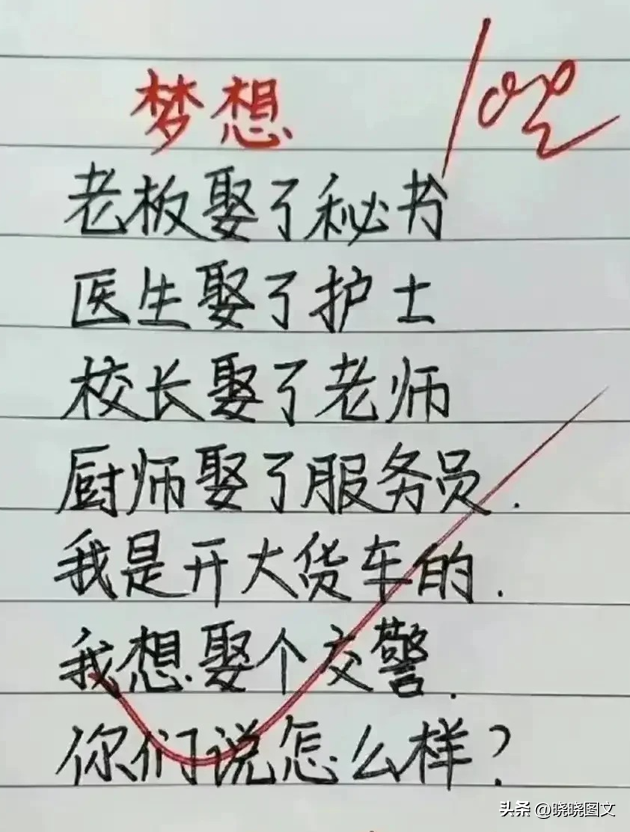 梦想
100
老板娶了秘书
医生娶了护士
校长娶了老师
厨师娶了服务员.
我是开大货车的.
我想娶个交警.
你们说怎么样?
头条 @晓晓图文